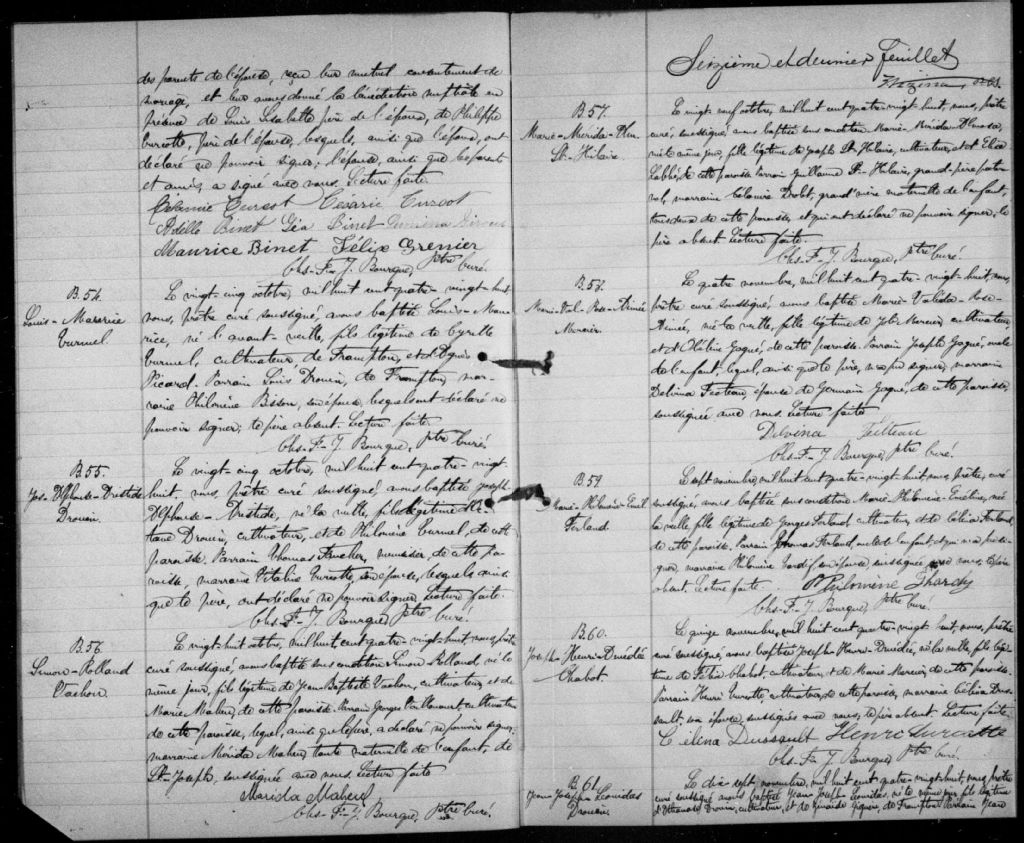 des parents de l'épouse, reçu leur mutuel consentement de
mariage, et leur avons donné la bénédiction nuptiale en
présence de Louis père de l'époux, de Philippe
Turcotte, père de l'épouse, lesquels, ainsi que l'époux, ont
déclaré ne pouvoir signer; l'épouse, ainsi que
et amis, a signé avec nous. Lecture faite.
Césarie Turcot
Adélle Binet Léa Binet
Maurice Binet Félix Grenier
Chs-F-J. Bourque, Ptre Curé.
B. 54.
Louis-Maurice
Turmel
Le vingt-cinq octobre, mil huit cent quatre-vingt-huit
nous, prêtre curé, soussigné, avons baptisé Louis-Mau
rice, né l'avant-veille, fils légitime de Cyrille
Turmel, cultivateur de Frampton, et d'
Picard. Parrain Louis Drouin, de Frampton, mar-
raine Philomène Bisson, son épouse, lesquels ont déclaré ne
pouvoir signer; le père absent. Lecture faite.
Chs-F-J. Bourque, Ptre Curé.
B. 55.
Jos-Alphonse-Aristide
Drouin.
Le vingt-cinq octobre, mil huit cent quatre-vingt-
huit, nous, prêtre curé soussigné, avons baptisé Joseph-
Alphonse-Aristide, né la veille, fils légitime
Drouin, cultivateur, et de Philomène Turmel, de cette
paroisse. Parrain Thomas Faucher, menuisier de cette pa-
roisse, marraine Vitaline Turcotte, son épouse, lesquels ainsi
que le père, ont déclaré ne pouvoir signer. Lecture faite.
Chs-F-J. Bourque, Ptre Curé.
B. 56.
Simon-Rolland
Vachon
Le vingt-huit octobre, mil huit cent quatre-vingt-huit, nous, prêtre
curé soussigné, avons baptisé sous condition Simon Rolland, né le
même jour, fils légitime de Jean Baptiste Vachon, cultivateur, et de
Marie Maheu, de cette paroisse. Parrain Georges Vaillancourt, cultivateur
de cette paroisse, lequel, ainsi que le père, a déclaré ne pouvoir signer,
marraine Mérida Maheu, tante maternelle de l'enfant, de
St-Joseph, soussignée avec nous. Lecture faite
Marida Maheu
Chs-F-J. Bourque, Ptre Curé.
Seizième et dernier Feuillet
B. 57.
Marie-Mérida-
St-Hilaire.
Le vingt neuf octobre, mil huit cent quatre-vingt-huit, nous, prêtre
curé, soussigné, avons baptisé sous condition Marie-Mérida-
née le même jour, fille légitime de Joseph St-Hilaire, cultivateur, et d'
Labbé, de cette paroisse. Parrain Guillaume St-Hilaire, grand-père pater-
nel, marraine Célanire Drolet, grand'mère maternelle de l'enfant,
tous deux de cette paroisse, et qui ont déclaré ne pouvoir signer; le
père absent. Lecture faite.
Chs-F-J. Bourque, Ptre Curé.
Marie-Val-Rose-Aimée
Mercier.
Le quatre novembre, mil huit cent quatre-vingt-huit, nous,
prêtre curé soussigné, avons baptisé Marie-Valida-Rose-
Aimée, née la veille, fille légitime de Mercier, cultivateur
et d'Obéline Gagné, de cette paroisse. Parrain Joseph Gagné, oncle
de l'enfant lequel, ainsi que le père, n'a pu signer, marraine
Delvina Fecteau, épouse de Germain Gagné, de cette paroisse,
soussignée avec nous. Lecture faite
Delvina Feilteau
Chs-F-J Bourque, Ptre Curé.
B. 59.
Marie-Philomène-
Ferland
Le sept novembre, mil huit cent quatre-vingt-huit, nous, prêtre, curé
soussigné, avons baptisé sous condition Marie-Philomène- née
la veille, fille légitime de Georges Ferland, cultivateur, et de Célina Ferland,
de cette paroisse. Parrain Thomas Ferland, oncle de l'enfant, et qui n'a pu si-
gner, marraine Philomène son épouse soussignée avec nous, le père
absent. Lecture faite
Philomène
Chs-F-J. Bourque, Ptre Curé.
B. 60.
Joseph-Henri-Amédée
Chabot.
Le onze novembre, mil huit cent quatre-vingt-huit, nous, prêtre
curé soussigné, avons baptisé Joseph-Henri-Amédée, né la veille, fils légi-
time de Félix Chabot, cultivateur, et de Marie Mercier, de cette paroisse.
Parrain Henri Turcotte, cultivateur, de cette paroisse, marraine Célina Dus-
sault, son épouse, soussignés avec nous, le père absent. Lecture faite.
Célina Dussault Henri Turcotte
Chs-F-J. Bourque, Ptre Curé.
B. 61
Jean Joseph Léonidas
Drouin.
Le dix sept novembre, mil huit cent quatre-vingt-huit, nous prêtre
curé soussigné avons baptisé Jean Joseph Léonidas, né le même jour fils légitime
Drouin, cultivateur, et de de Frampton. Parrain Jean